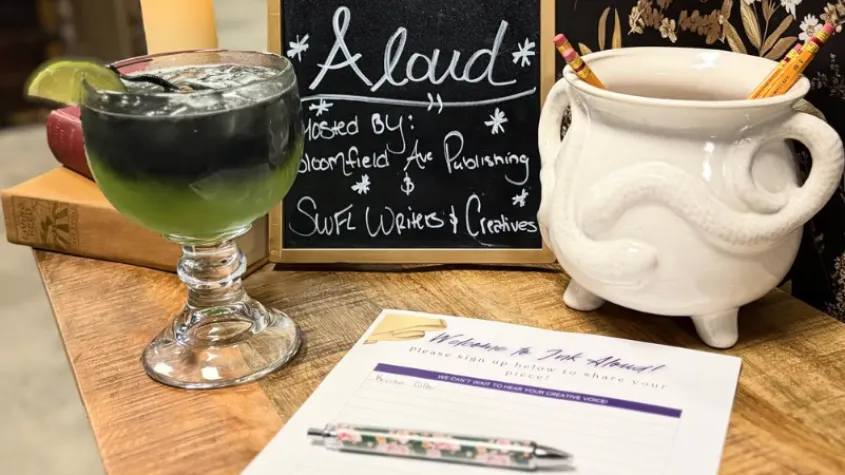 Aloud
Hosted By:
Bloomfield Ave Publishing
&
SWFL Writers & Creatives
Welcome to Ink Aloud!
Please sign up below to share your
piece!
WE CAN'T WAIT TO HEAR YOUR CREATIVE VOICE!